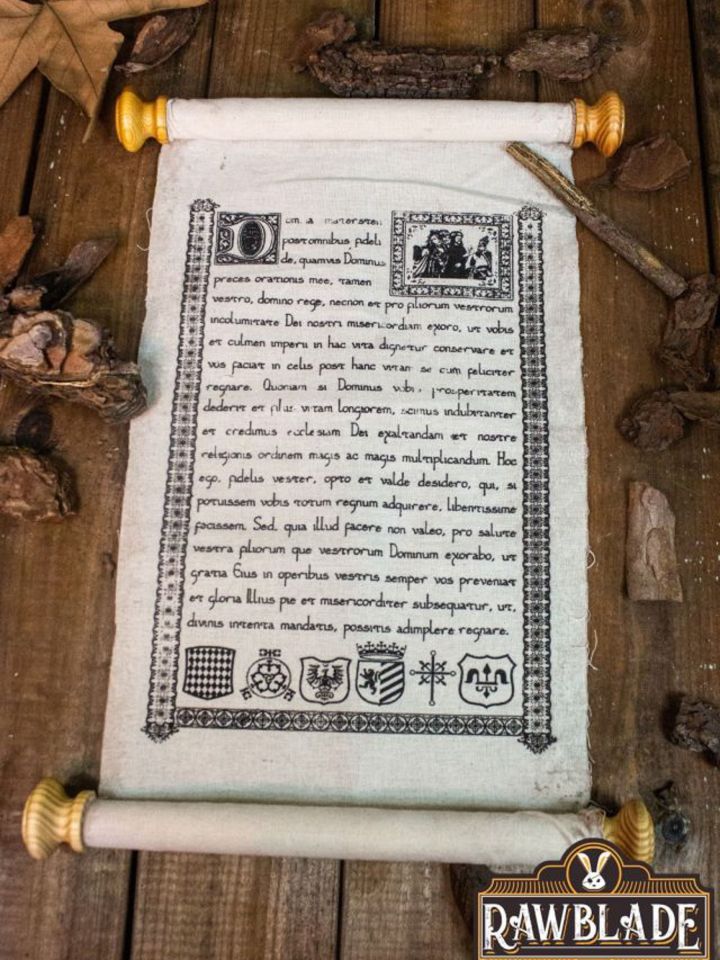 D
post omnibus fideli
de, quamvis Dominus
preces orationis mee, tamen
vestro, domino rege, necnon et pro filiorum vestrorum
incolumitate Dei nostri misericordiam exoro, ut vobis
et culmen imperii in hac vita dignetur conservare et
vos faciat in celis post hanc vitam se cum feliciter
regnare. Quoniam si Dominus vobis prosperitatem
dederit et filiis vitam longiorem, scimus indubitanter
et credimus ecclesiam Dei exaltandam et nostre
religionis ordinem magis ac magis multiplicandum. Hoc
ego, fidelis vester, opto et valde desidero, qui, si
potuissem vobis totum regnum adquirere, libentissime
facissem. Sed, quia illud facere non valeo, pro salute
vestra filiorum que vestrorum Dominum exorabo, ut
gratia Eius in operibus vestris semper vos preveniat
et gloria Illius pie et misericorditer subsequatur, ut,
divinis intenta mandatis, possitis adimplere regnare.
RAWBLADE